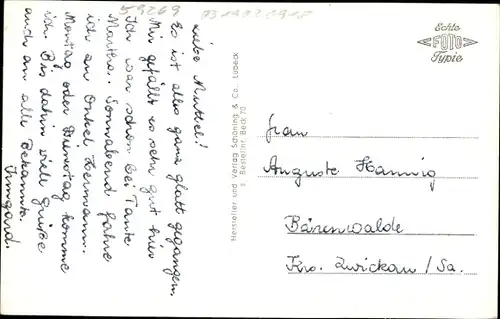 59269
Liebe Mutter!
Es ist alles ganz glatt gegangen.
Mir gefällt es sehr gut hier.
Ich war schon bei Tante
Martha. Sonnabend fahre
ich zu Onkel Hermann.
Montag oder Dienstag komme
ich. Bis dahin viele Grüße
auch an alle Bekannte.
Irmgard.
Hersteller und Verlag Schöning & Co., Lübeck
s. Bestellnr. Beck 70
Echte
FOTO
Typie
Frau
Auguste Hannig
Bärenwalde
Krs. Zwickau/Sa.